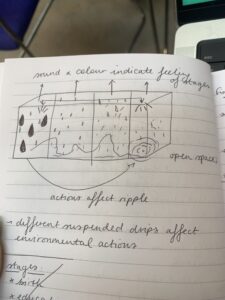 sound & colour indicate feeling
of stages
open space
actions affect ripple
- different suspended drops affect
environmental actions
stages:
* birth
* educat